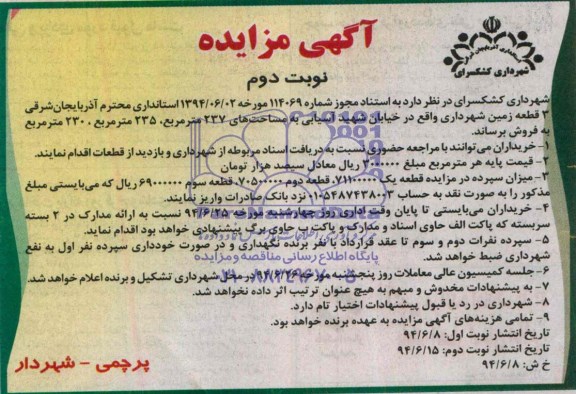 آگهی مزایده
نوبت دوم
شهرداری کشکسرای
شهرداری کشکسرای در نظر دارد به استناد مجوز شماره ۱۱۴۰۶۹ مورخه ۱۳۹۴/۰۶/۰۲ استانداری محترم آذربایجان‌شرقی
۳ قطعه زمین شهرداری واقع در خیابان شهید آسیابی به مساحت‌های ۲۳۷ مترمربع، ۲۳۵ مترمربع ، ۲۳۰ مترمربع
به فروش برساند.
۱- خریداران می‌توانند با مراجعه حضوری نسبت به دریافت اسناد مربوطه از شهرداری و بازدید از قطعات اقدام نمایند.
۲- قیمت پایه هر مترمربع مبلغ ۳۰۰۰۰۰۰ ریال معادل سیصد هزار تومان
۳- میزان سپرده در مزایده قطعه یک ۷۱۱۰۰۰۰۰، قطعه دوم ۷۰۵۰۰۰۰۰، قطعه سوم ۶۹۰۰۰۰۰۰ ریال که می‌بایستی مبلغ
مذکور را به صورت نقد به حساب ۰۱۰۵۴۸۷۴۳۸۰۰۲ نزد بانک صادرات واریز نمایند.
۴- خریداران می‌بایستی تا پایان وقت اداری روز چهارشنبه مورخه ۹۴/۶/۲۵ نسبت به ارائه مدارک در ۲ بسته
سربسته که پاکت الف حاوی اسناد و مدارک و پاکت ب حاوی برگ پیشنهادی خواهد بود اقدام نماید.
۵- سپرده نفرات دوم و سوم تا عقد قرارداد با نفر برنده نگهداری و در صورت خودداری سپرده نفر اول به نفع
شهرداری ضبط خواهد شد.
۶- جلسه کمیسیون عالی معاملات روز پنجشنبه مورخه ۹۴/۶/۲۶ در محل شهرداری تشکیل و برنده اعلام خواهد شد.
۷- به پیشنهادات مخدوش و مبهم به هیچ عنوان ترتیب اثر داده نخواهد شد.
۸- شهرداری در رد یا قبول پیشنهادات اختیار تام دارد.
۹- تمامی هزینه‌های آگهی مزایده به عهده برنده خواهد بود.
تاریخ انتشار نوبت اول: ۹۴/۶/۸
تاریخ انتشار نوبت دوم: ۹۴/۶/۱۵
خ ش: ۹۴/۶/۸
پرچمی - شهردار
پایگاه اطلاع رسانی مناقصه و مزایده